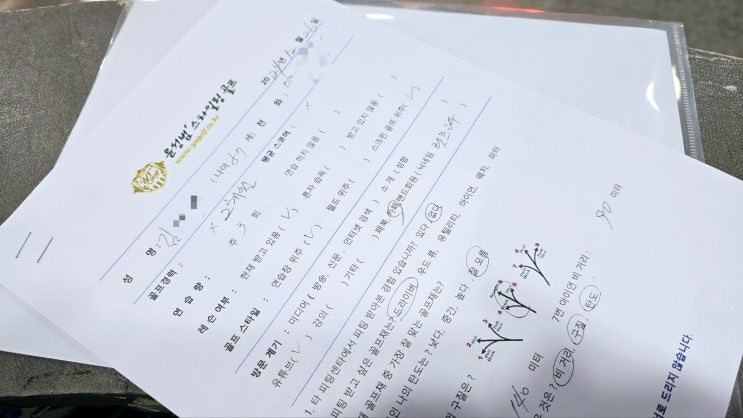 윤성범 스타일링 골프
www.ysgolf.co.kr
2021년 12월 26일
성 명 : 김 (나이 세) 전 화 : 010
골프경력 : × 2개월 평균 스코어 : ×
연 습 량 : 주 3 회 연습 하지 않음 ( )
레슨 여부 : 현재 받고 있음 ( √ ) 혼자 습득 ( ) 받고 있지 않음 ( )
골프 스타일 : 연습장 위주 ( √ ) 필드 위주 ( ) 스크린 골프 위주 ( √
방문 계기 : 미디어 ( 방송, 신문, 인터넷 검색 ) 소 개 (성함
유튜브 ( √ ) 강의 ( ) 기타 ( ) 페북, 카페
1. 타 피팅센타에서 피팅 받아본 경험 있습니까? 있다 없다
피팅 받고 싶은 골프채는? 드라이버 우드 류, 유틸리티, 아이언, 웨지, 퍼터
골프채 중 가장 잘 맞는 골프채는?
나의 탄도는? 낮다, 중간, 높다 잘 모름
구질은?
1 2 3 4 5 6 7 8 9
140 미터 7번 아이언 비 거리 : 90 미터
것은? 비 거리, 구질, 탄도,
로 드리지 않습니다.